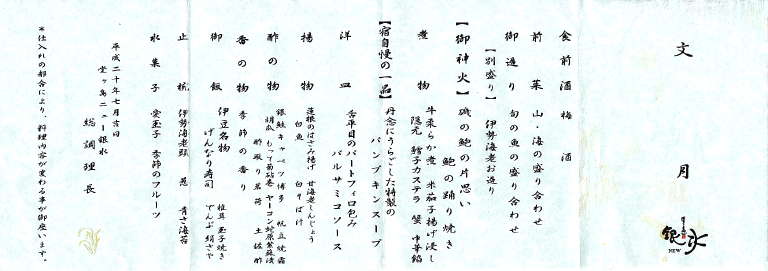 文月
銀水
NEW
食前酒 梅酒
前菜 山・海の盛り合わせ
御造り 旬の魚の盛り合わせ
【別盛り】 伊勢海老お造り
【御神火】 磯の鮑の片思い
鮑の踊り焼き
煮物 牛柔らか煮 米茄子揚げ浸し
隠元 鱈子カステラ 蟹 中華餡
【宿自慢の一品】 丹念にうらごした特製の
パンプキンスープ
洋皿 舌平目のパートフィロ包み
バルサミコソース
揚物 蓮根のはさみ揚げ 甘海老しんじょう
白魚
酢の物 銀鮭キャベツ博多
胡瓜 もって菊砧巻 ヤーコン
酢取り茗荷 土佐酢
香の物 季節の香り
御飯 伊豆名物
げんなり寿司 椎茸 玉子焼き
でんぶ 絹さや
止椀 伊勢海老頭 葱 青さ海苔
水菓子 愛玉子 季節のフルーツ
平成二十年七月吉日
堂ヶ島ニュー銀水
総調理長
*仕入れの都合により、料理内容が変わる事が御座います。